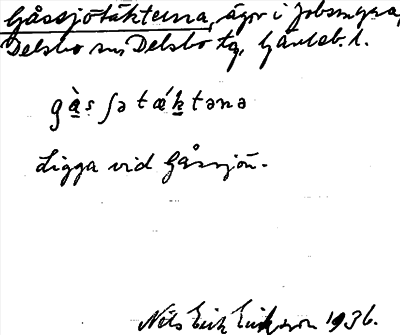 Gåssjötäkterna, ägor i Jobsmyra,
Delsbo sn, Delsbo tg, Gävleb. l.
gàs ʃə tǽktəna
Ligga vid Gåssjön.
Nils Erik Eriksson 1936.